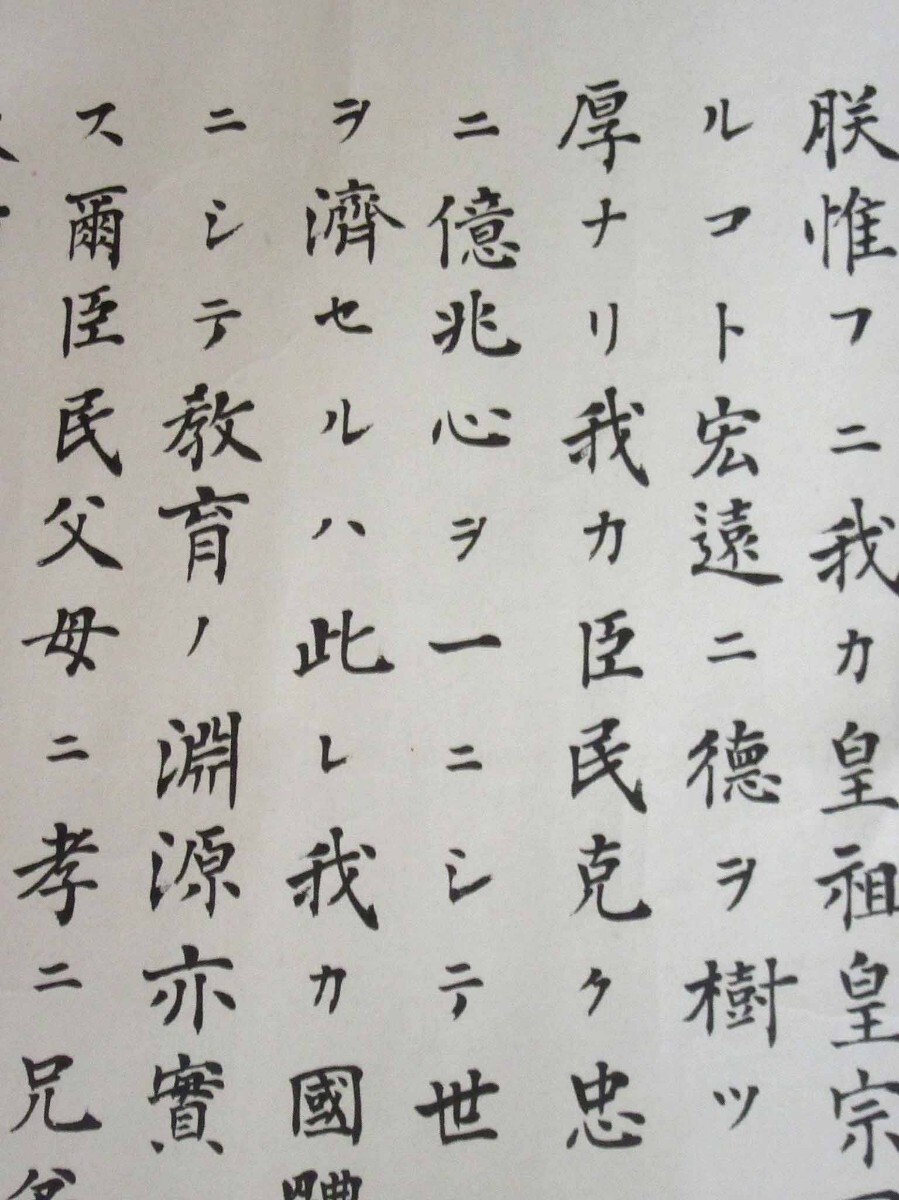 朕惟フニ我カ皇祖皇宗
ルコト宏遠ニ德ヲ樹ツ
厚ナリ我カ臣民克ク忠
ニ億兆心ヲ一ニシテ世
ヲ濟セルハ此レ我カ國體
ニシテ教育ノ淵源亦實
ス爾臣民父母ニ孝ニ兄